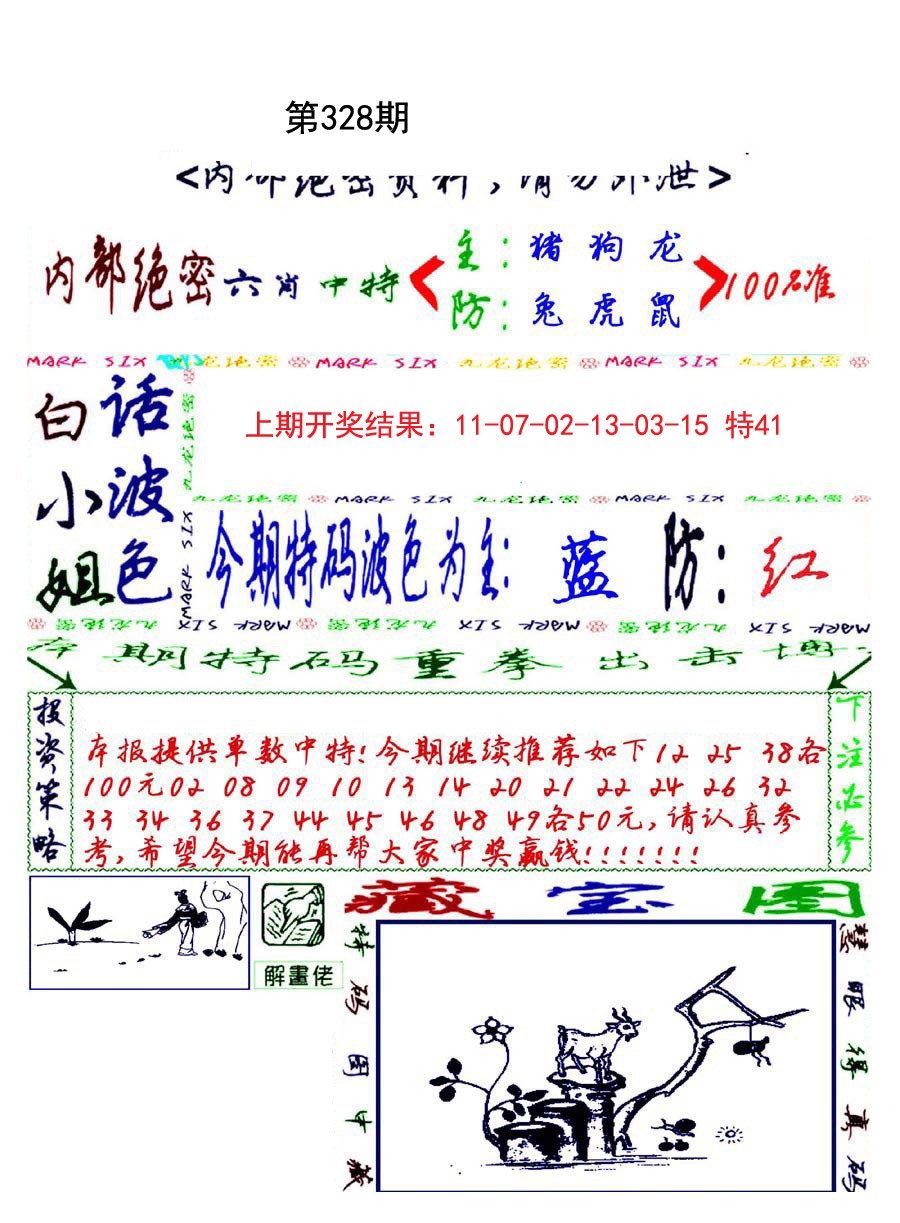 第328期
<内部绝密资料，请勿外泄>
内部绝密六肖中特
主：猪 狗 龙
防：兔 虎 鼠
100%准
MARK SIX 九龙绝密 MARK SIX 九龙绝密 MARK SIX 九龙绝密
白小姐
话波色
九龙绝密
MARK SIX
上期开奖结果：11-07-02-13-03-15 特41
九龙绝密 MARK SIX 九龙绝密 MARK SIX 九龙绝密
今期特码波色为主：蓝 防：红
九龙绝密 MARK SIX 九龙绝密 MARK SIX 九龙绝密 MARK SIX
期特码重拳出击
投资策略
本报提供单数中特!今期继续推荐如下12 25 38各
100元02 08 09 10 13 14 20 21 22 24 26 32
33 34 36 37 44 45 46 48 49各50元,请认真参
考,希望今期能再帮大家中奖赢钱!!!!!!!
下注必参
解畫佬
藏宝图
特码图中藏
慧眼得真码